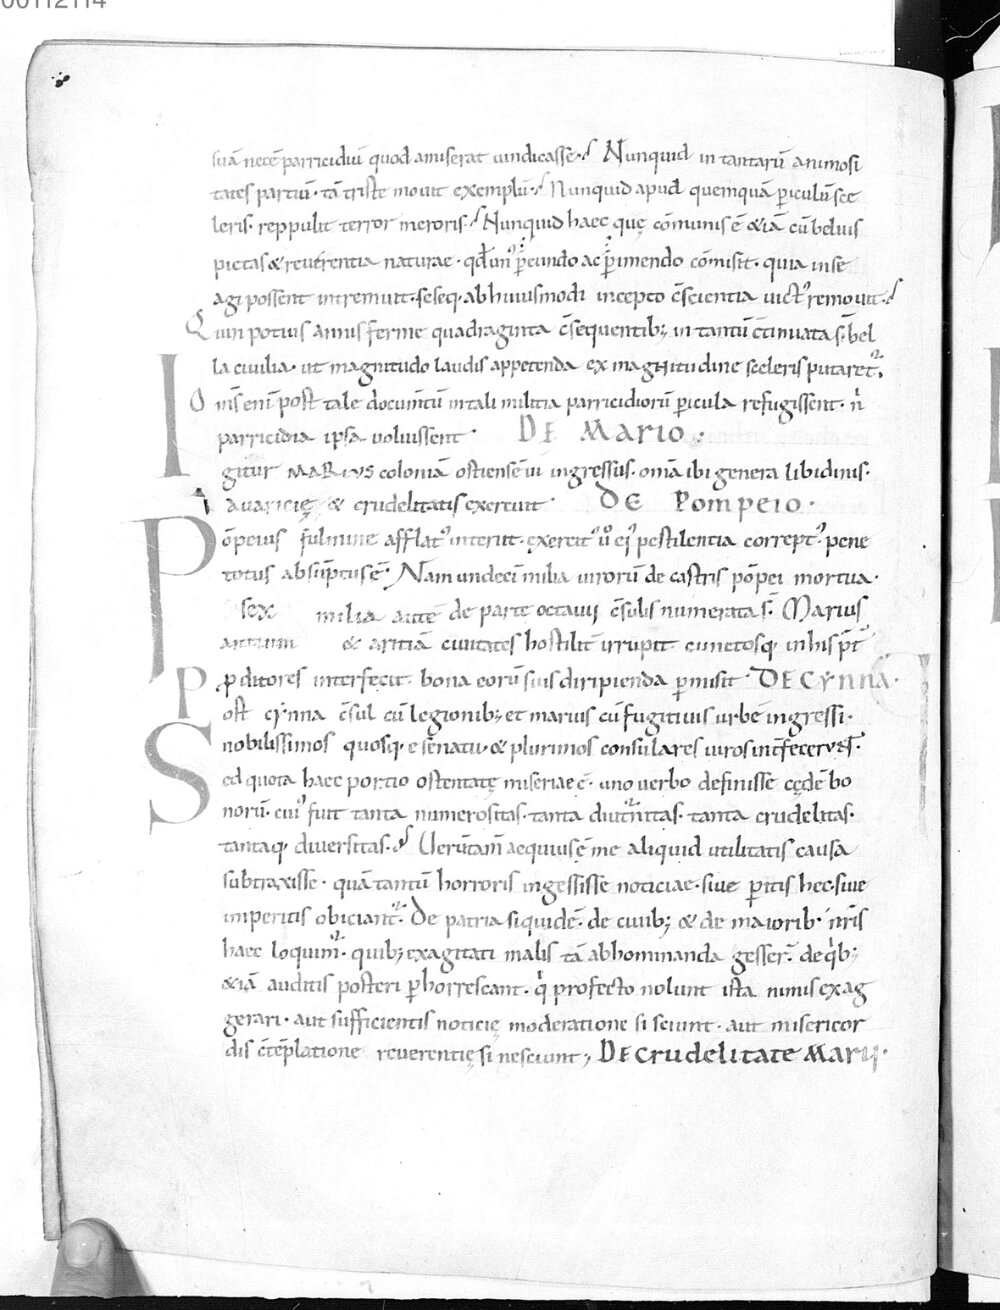 00112114
suā necē parricidiū quod amiserat uindicasse. Nunquid in tantarū animosi
tates partiū· tā triste mouit exemplū. Nunquid apud quemquā ꝑiculū sce
leris· reppulit terror meroris. Nunquid haec quę cōmunis ē &iā cū beluis
pietas & reuerentia naturae· qđ un᾿ p̄cundo ac ꝑimendo cōmisit· quia in se
agi possent intremuit· seseq· ab huiusmodi incepto c̄scientia uict᾿ remouit.
Quin potius annis ferme quadraginta c̄sequentib; in tantū c̄tinuata s̄ bel
la ciuilia· ut magnitudo laudis appetenda ex magnitudine sceleris putaret᾿.
Om̄s enī post tale documtū in tali militia parricidiorū ꝑicula refugissent· n̄
parricidia ipsa uoluissent· DE MARIO·
Igitur MARIUS coloniā ostiensē ui ingressus· om̄a ibi genera libidinis·
auaricię & crudelitatis exercuit· DE Pompeio·
Pōpeius fulmine afflat᾿ interiit· exercit᾿ ū ei᾿ pestilentia corrept᾿· pene
totus absūptus ē· Nam undecī milia uirorū de castris pōpei mortua·
sex milia autē de parte octauij c̄sulis numerata s̄· Marius
antium & aritiā ciuitates hostilit̄ irrupit· cunctosq· in his p̄t
ꝓditores interfecit· bona eorū suis diripienda ꝑmisit· DE CYNNA·
Post cynna c̄sul cū legionib; et marius cū fugitiuis urbē ingressi·
nobilissimos quosq· e senatu· & plurimos consulares uiros int̄fecerunt·
Sed quota haec portio ostentatę miseriae ē· uno uerbo definisse cędē bo
norū· cui᾿ fuit tanta numerositas· tanta diut̄nitas· tanta crudelitas·
tantaq· diuersitas. Uerūtam̄ aequius ē me aliquid utilitatis causa
subtraxisse· quā tantū horroris ingessisse noticiae· siue ꝑitis hec· siue
imperitis obiciant᾿. De patria siquidē· de ciuib; & de maiorib· nr̄is
haec loquim᾿· quib; exagitati malis tā abhominanda gesser̄· de qib;
&iā auditis posteri ꝑhorrescant· qi profecto nolunt ista nimis exag
gerari· aut sufficientis noticię moderatione si sciunt· aut misericor
dis c̄tēplatione reuerentię si nesciunt; DE Crudelitate Marij·